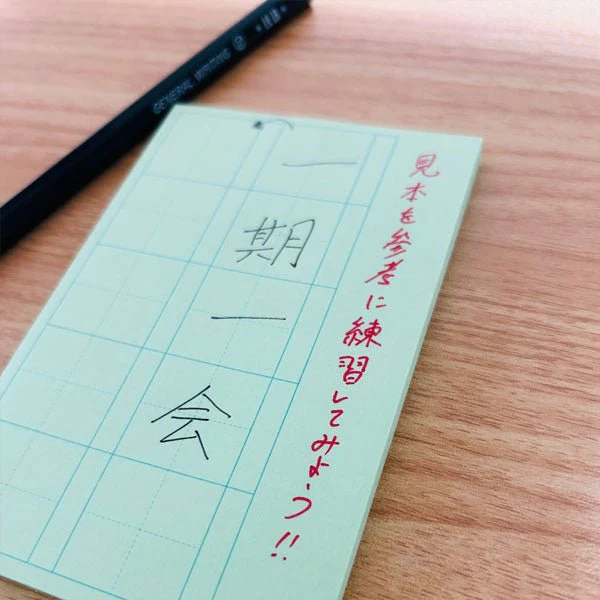 見本を参考に練習してみよう!!
一期一会
GENERAL WRITING